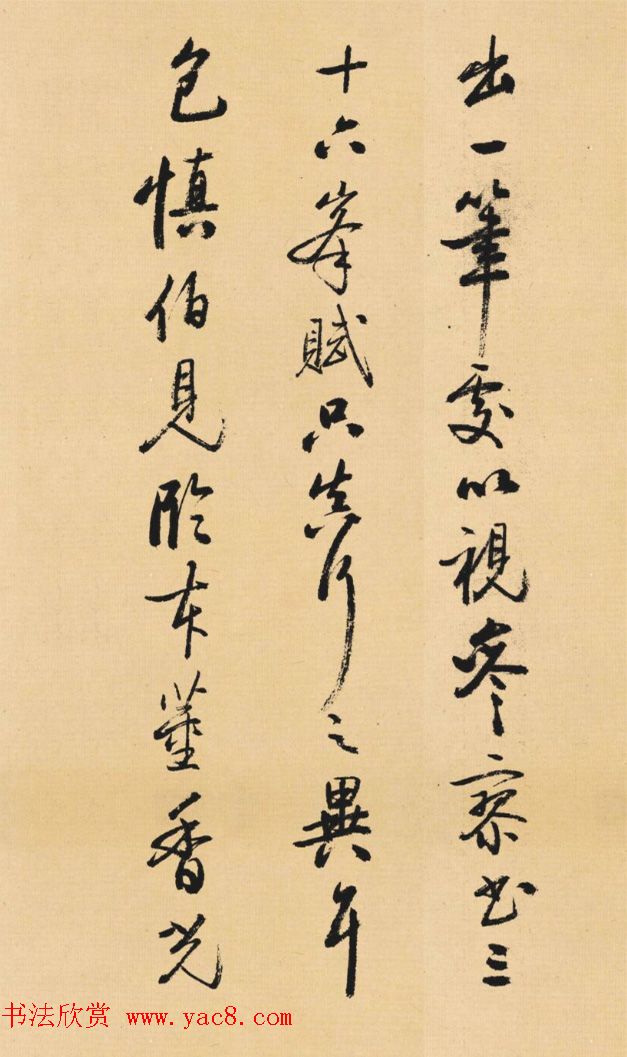 出一筆處以視參寥書三
十六峯賦只真行之異耳
包慎伯見臨本董香光
书法欣赏 www.yac8.com